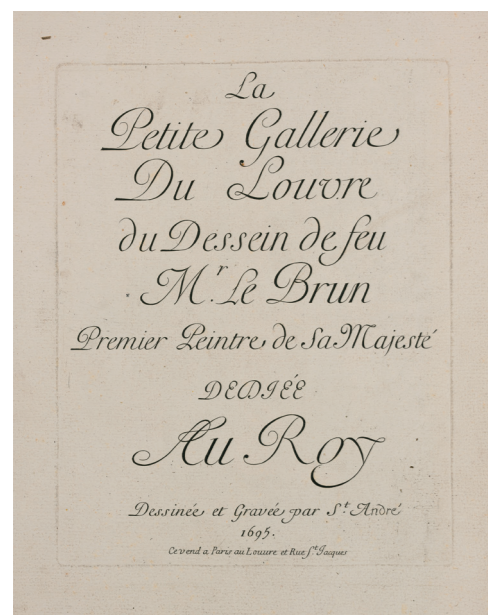 La
Petite Gallerie
Du Louvre
du Dessein de feu
Mr. Le Brun
Premier Peintre de Sa Majesté
DEDIÉE
Au Roy
Dessinée et Gravée par St. André
1695.
Ce vend a Paris au Louvre et Rue St. Jacques